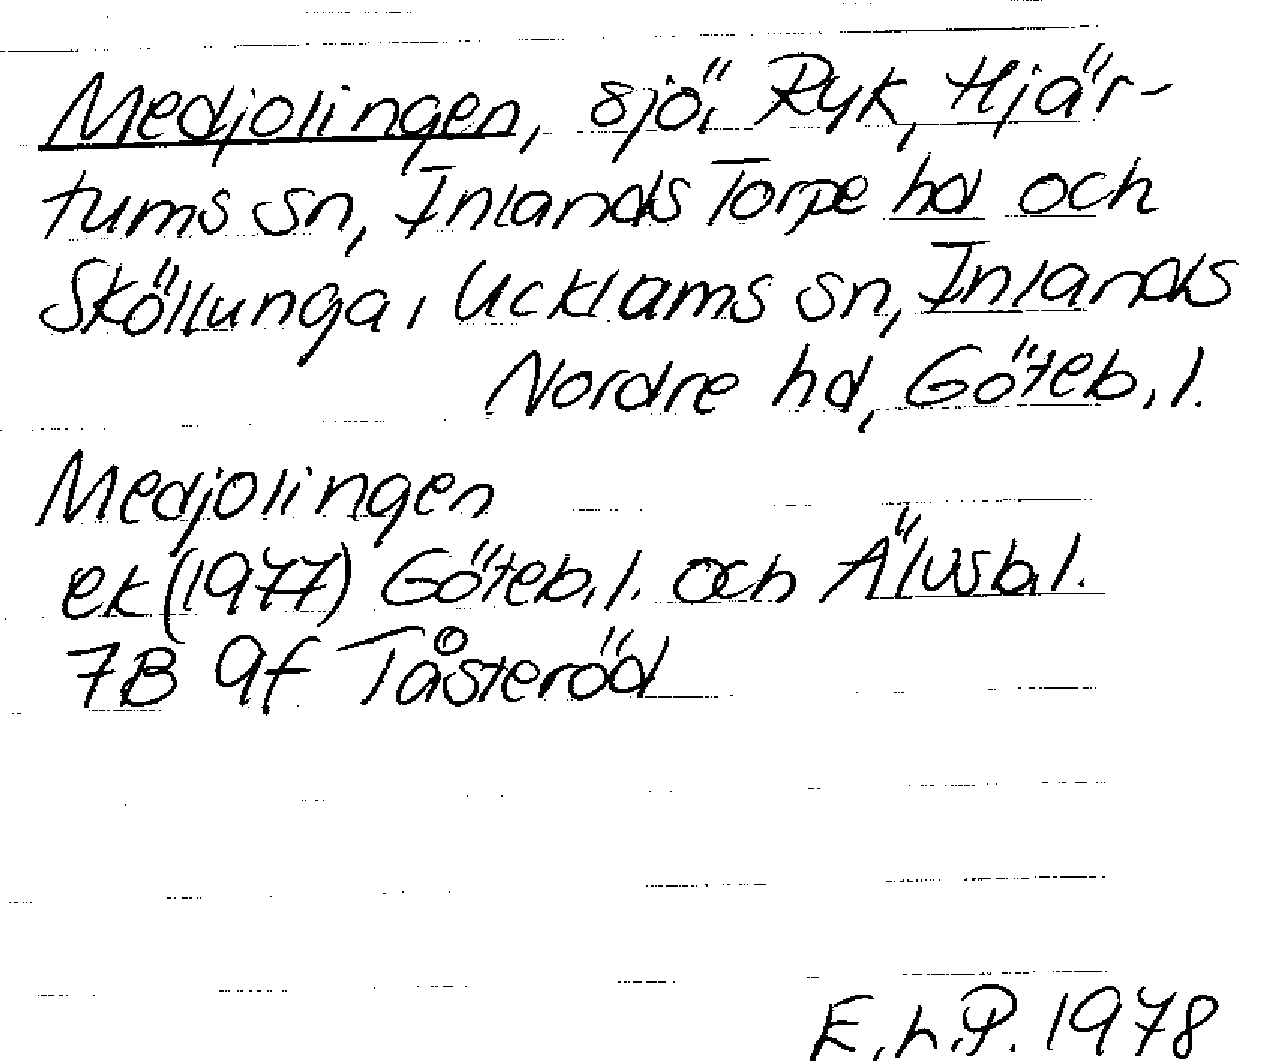 Medjolingen, sjö. Ryk, Hjär-
tums sn, Inlands Torpe hd och
Sköllunga, Ucklams sn, Inlands
Nordre hd, Göteb. l.
Medjolingen
ek (1977) Göteb. l. och Älvsb. l.
7B 9f Tåsteröd
E. h. P. 1978